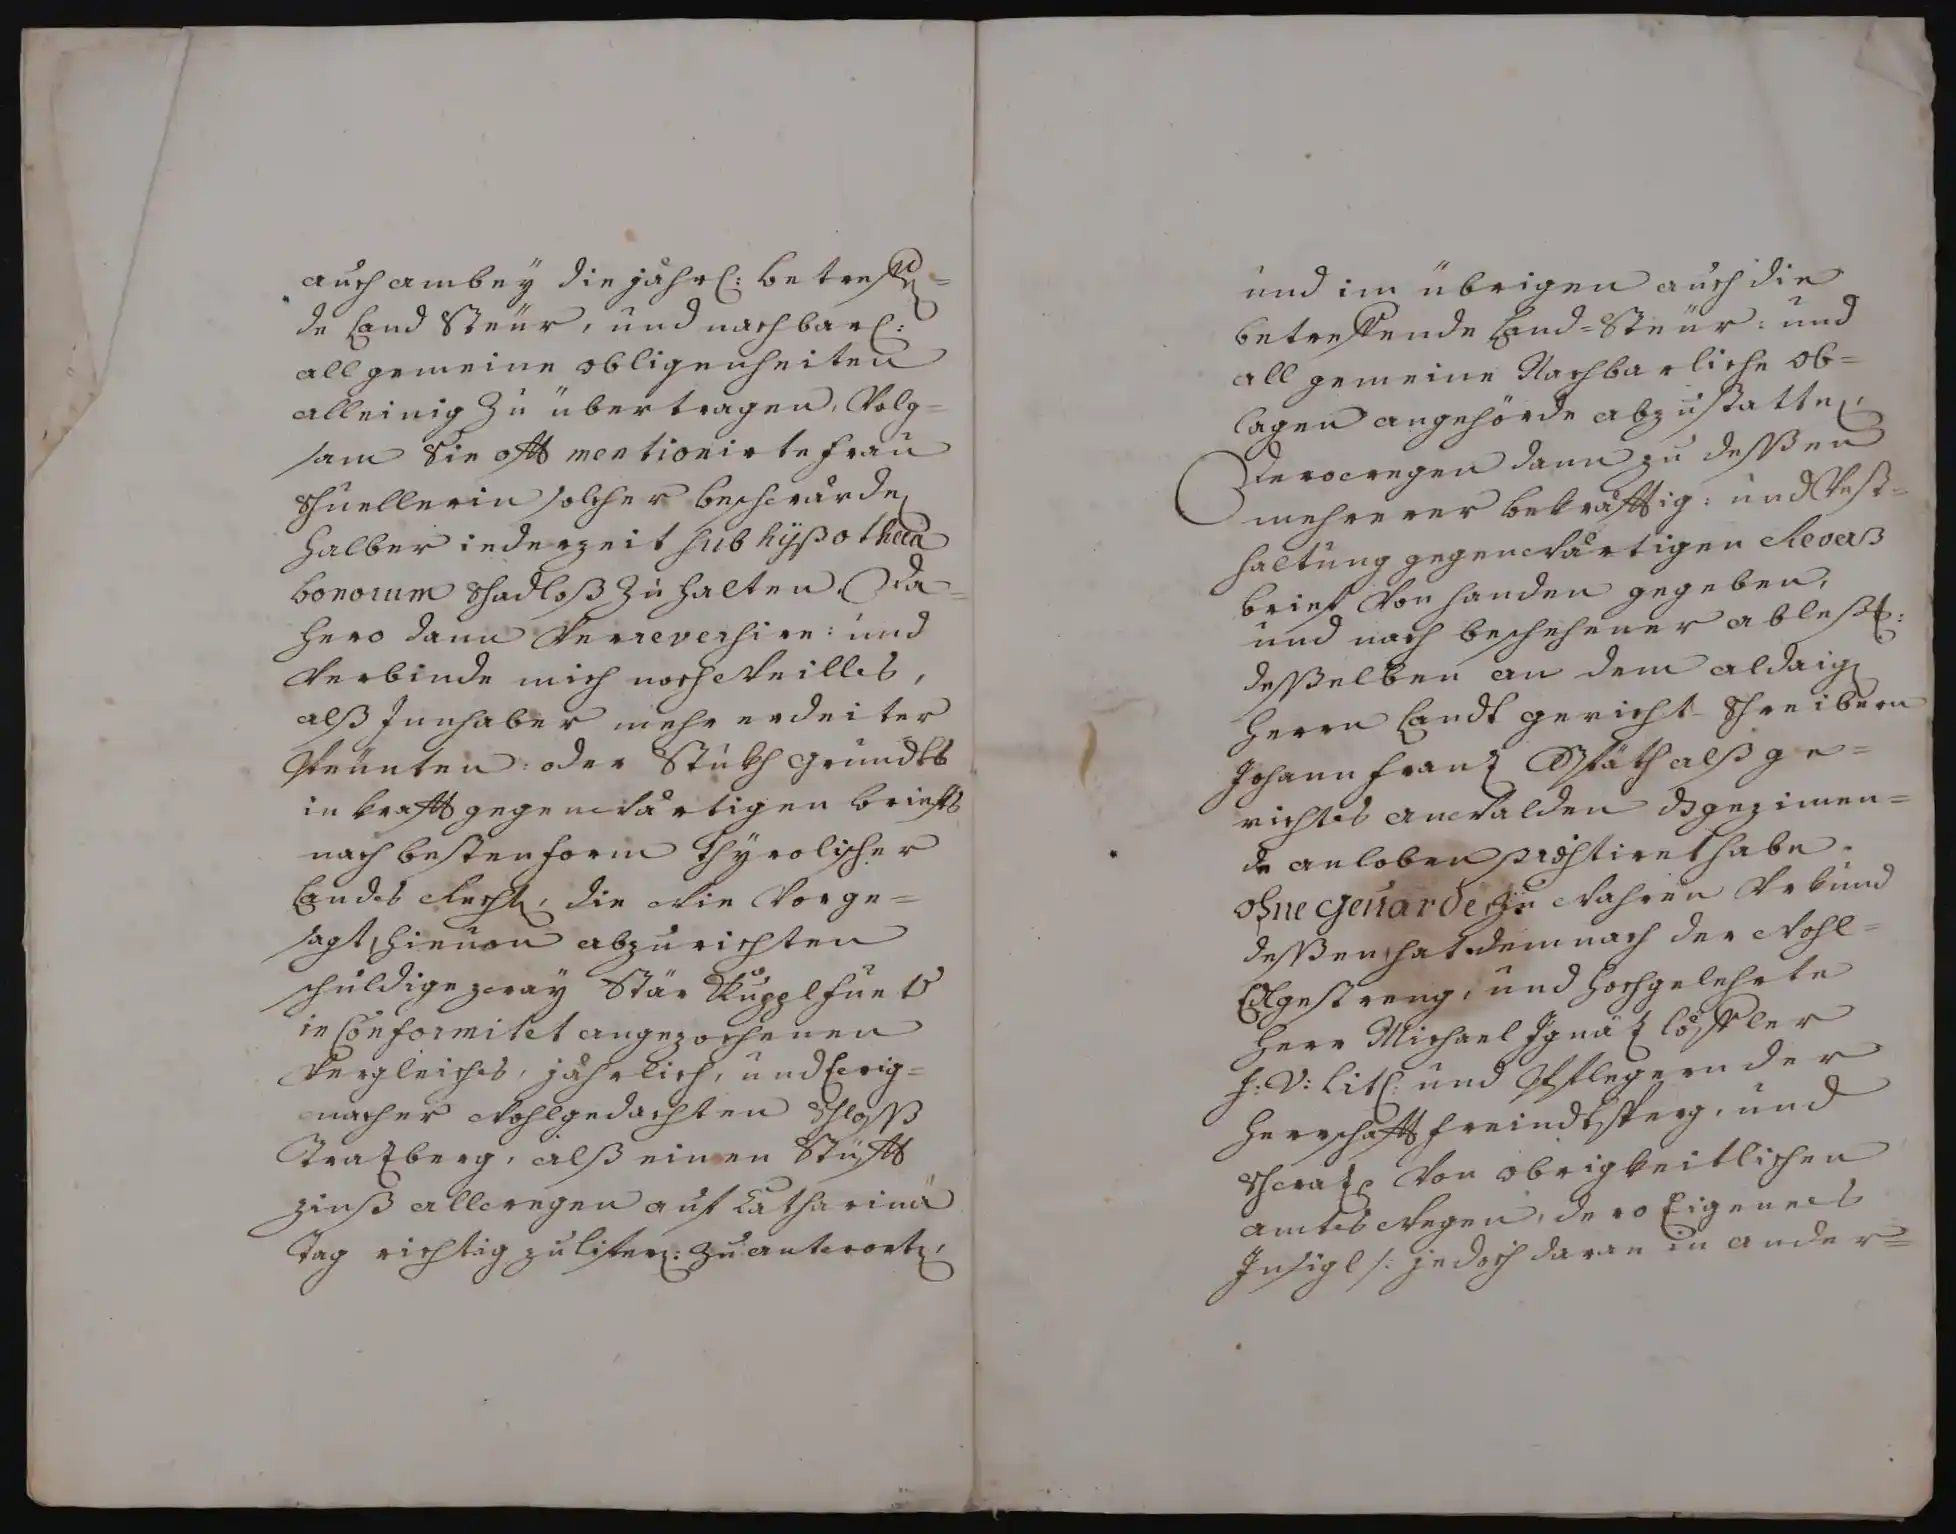 auch ambey die jährl: betreffen=
de Land Steür, und nachbarl:
allgemeine obligenheiten
alleinig zu übertragen, Volg=
sam Sie offt mentionirte Frau
Schuellerin solcher beschwärden
halber iederzeit sub hÿpotheca
bonorum schadloß zu halten. Da=
hero dann Verreversire: und
Verbinde mich noch Weillers,
alß Innhaber mehr erdeiter
Peünten: oder Stukh Grundts
in krafft gegenwärtigen brieffs
nach besten form Thyrolischer
Landts Rechten, die wie Vorge=
sagt, hieuon abzurichten
schuldige zway Stär Kuppl fuetter
in Conformitet angezochenen
Vergleiches, jährlich, und Ewig=
 wohlgedachten Schloss
Trazberg, alß einen Stüfft
zinß allwegen auf Catharinä
Tag richtig zu lifern: zu antworten,
und im übrigen auch die
betreffende Land=Steür: und
allgemeine Nachbarliche ob=
lagen angehörde abzustatten,
Derowegen dann zu dessen
mehrerer bekräfftig: und Vest=
haltung gegenwärtigen Reverß
brief Von handen gegeben,
und nach beschehener ableß:
desselben an dem aldaigen
Herrn Landtgericht-Schreibern
Johann Franz Späth alß ge=
richts anwalden gezimen=
de anloben  habe.
ohne Gevärde zu wahren Urkund
dessen hat demnach der Wohl=
Edlgestreng, und hochgelehrte
Herr Michael Ignäz Löffler
J: V: Lit: und Pflegern der
Herrschafft Freindtsperg, und
Schwaz Von obrigkeitlichen
amts wegen, dero Eigenes
Insigl /: jedoch daran in ander=